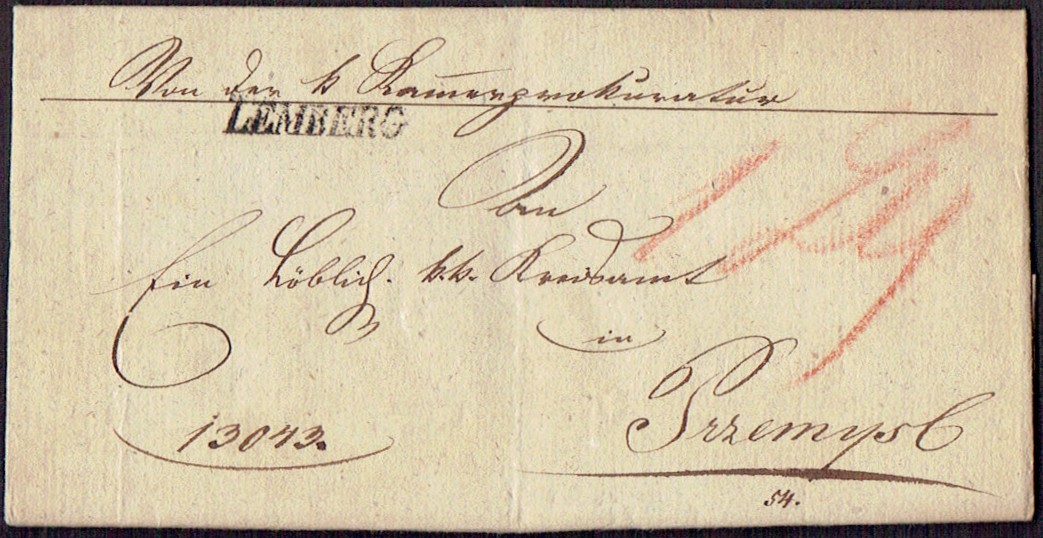 Von der k Kammerprokuratur
LEMBERG
An
Ein Löblich. k.k. Kreisamt
in
13043.
Przemysl
54.